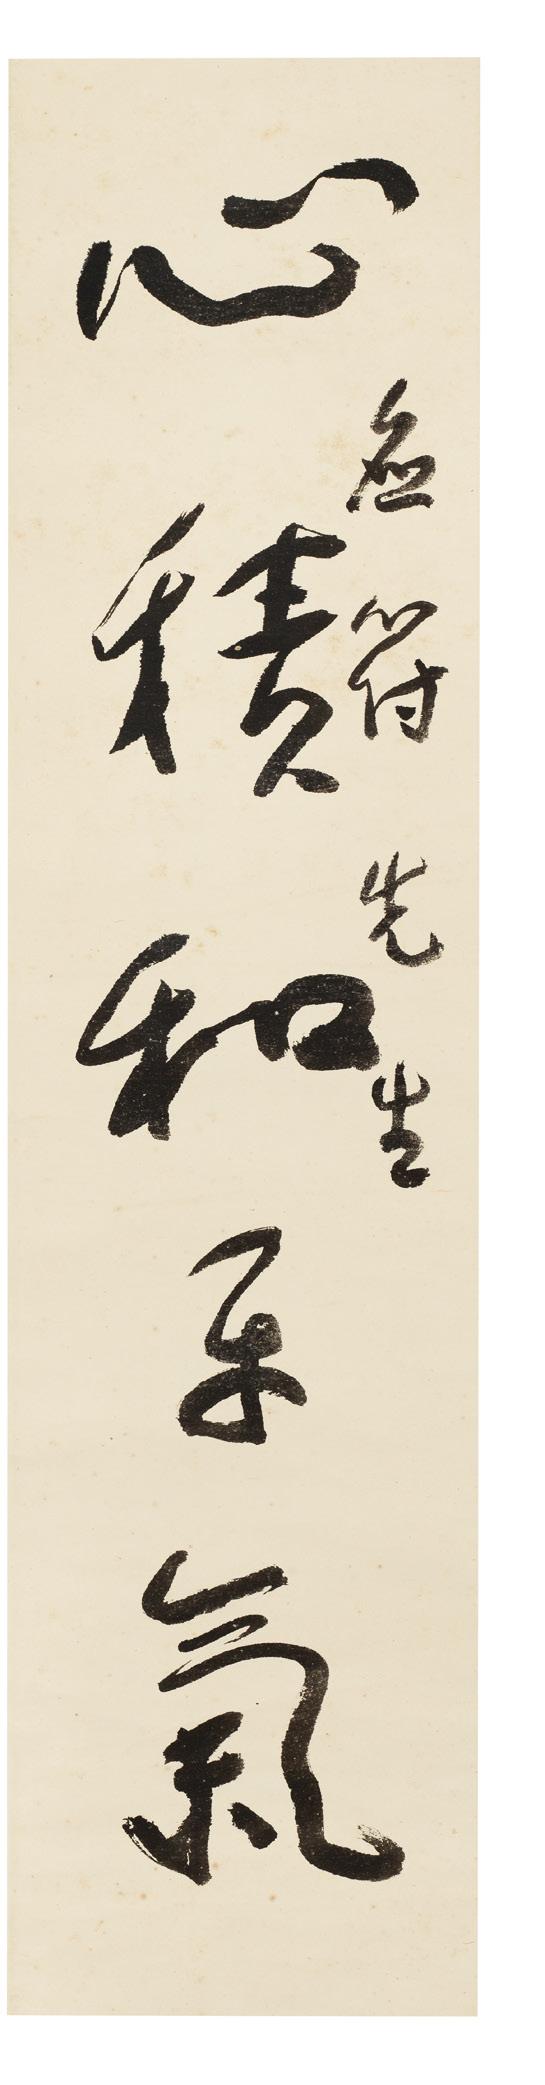 符先生
心積和平氣